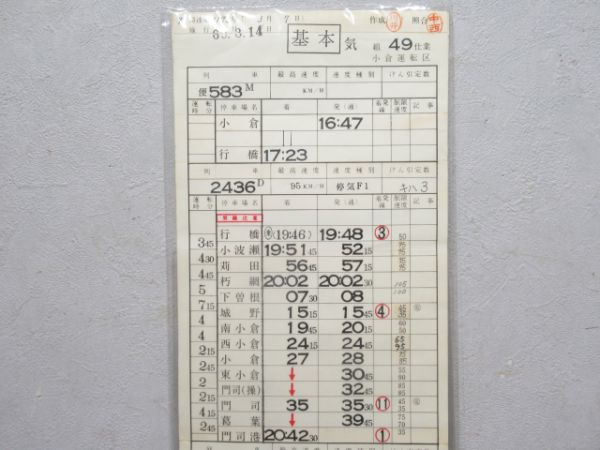 基本 気 組 49 仕業
小倉運転区
列車 最高速度 速度種別 けん引定数
便583M KM/H
運転時分 停車場名 着 発(通) 着発線 制限速度 記事
小倉 16:47
行橋 17:23
列車 最高速度 速度種別 けん引定数
2436D 95KM/H 停気F1 キハ3
運転時分 停車場名 着 発(通) 着発線 制限速度 記事
行橋 (19:46) 19:48 ③ 50
3 45 小波瀬 19:51 45 52 15
4 30 苅田 56 45 57 15
4 45 朽網 20:02 20:02 30
5 下曽根 07 30 08
7 15 城野 15 15 15 45 ④
4 南小倉 19 45 20 15
4 西小倉 24 15 24 45
2 15 小倉 27 28
2 45 東小倉 ↓ 30 45
2 門司(操) ↓ 32 45
2 15 門司 35 35 30 ⑪
4 15 葛葉 ↓ 39 45
2 45 門司港 20:42 30 ①